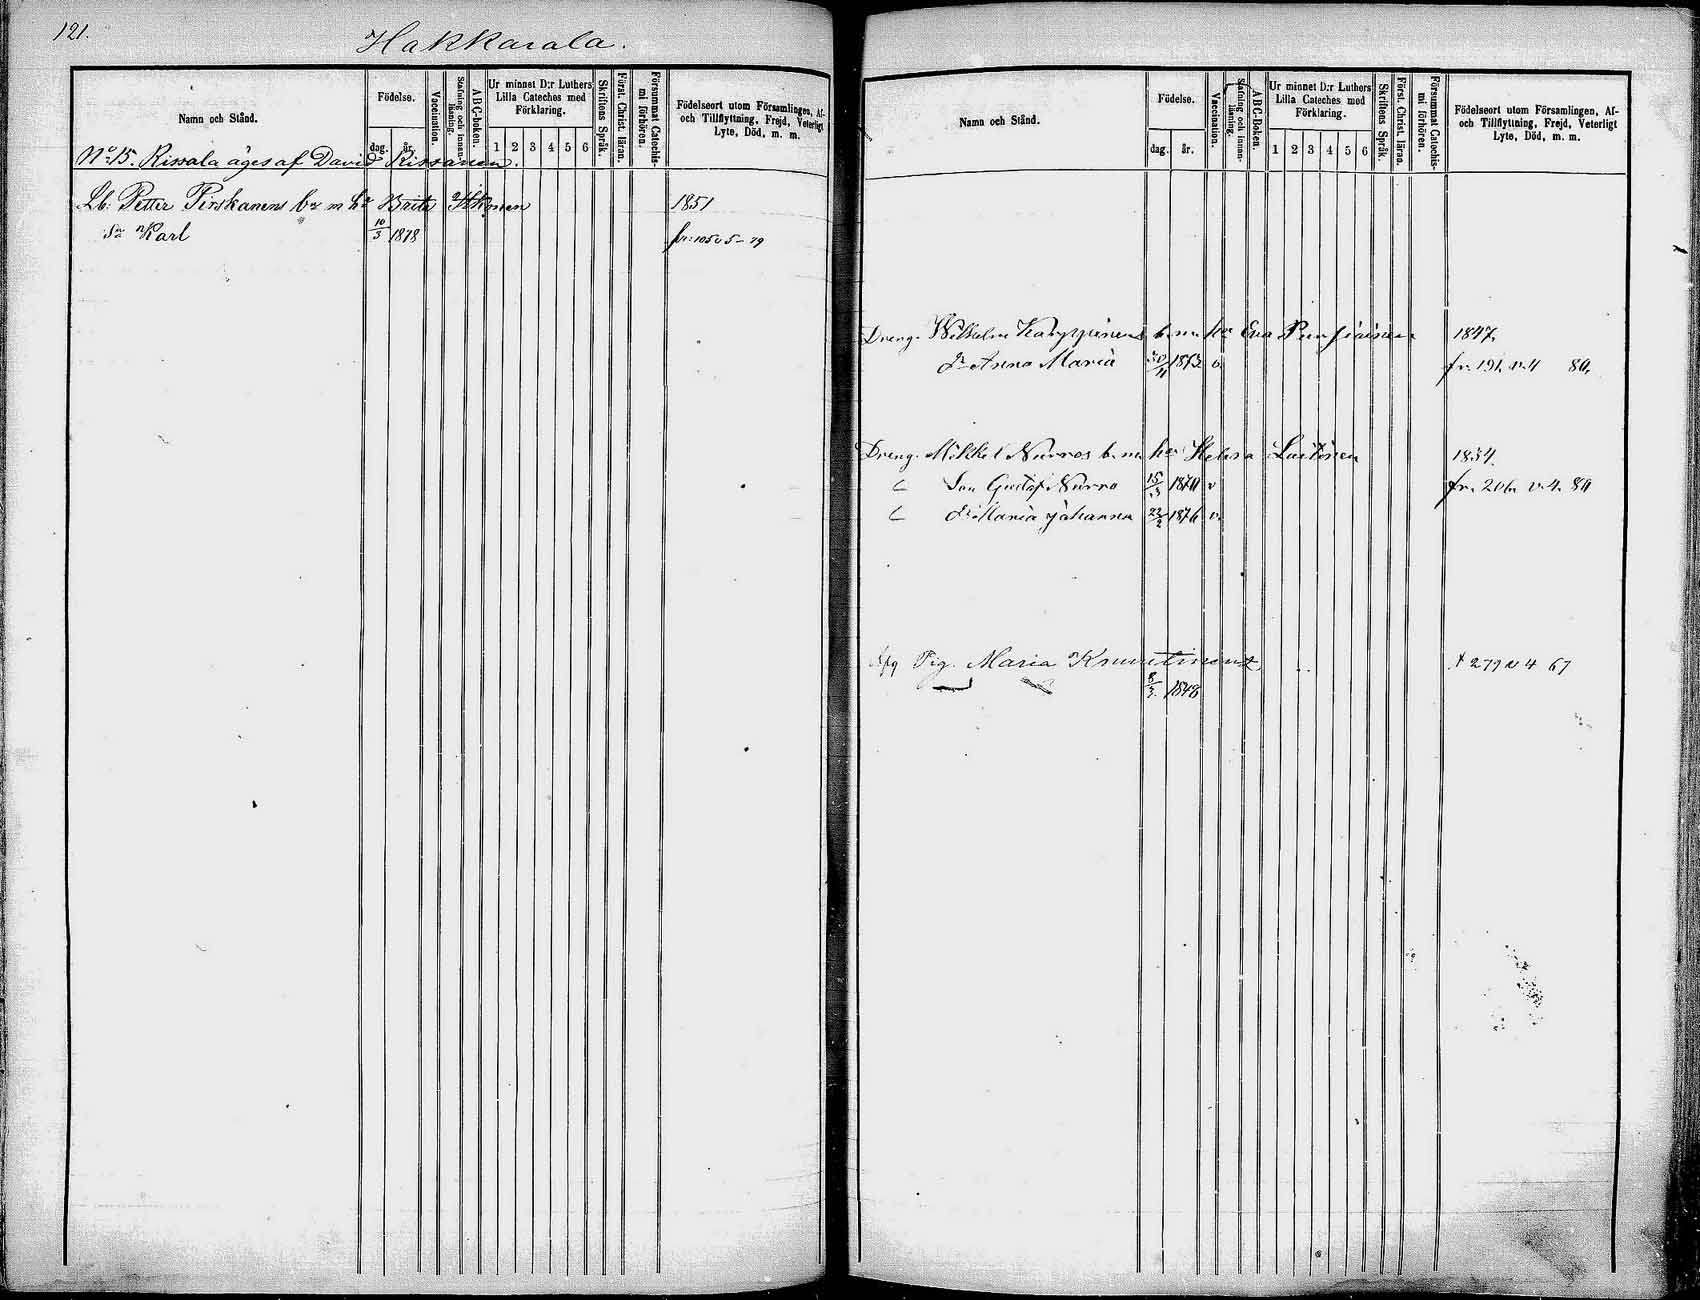 121.
Hakkarala.
Namn och Stånd.
Födelse.
dag.
år.
Vaccination.
Stafning och innan-
läsning.
ABC-Boken.
Ur minnet D:r Luthers
Lilla Cateches med
Förklaring.
1 2 3 4 5 6
Skriftens Språk.
Först. Christ. läran.
Försummat Catechis-
mi förhören.
Födelseort utom Församlingen, Af-
och Tillflyttning, Frejd, Veterligt
Lyte, Död, m. m.
No 15. Rissala äges af David Rissanen.
Lb: Petter Pirskanens br m hr Brita Itkonen 1851
Sn Karl 10/3 1878 fr: 105 v 5-79
Namn och Stånd.
Födelse.
dag.
år.
Vaccination.
Stafning och innan-
läsning.
ABC-Boken.
Ur minnet D:r Luthers
Lilla Cateches med
Förklaring.
1 2 3 4 5 6
Skriftens Språk.
Först. Christ. läran.
Försummat Catechis-
mi förhören.
Födelseort utom Församlingen, Af-
och Tillflyttning, Frejd, Veterligt
Lyte, Död, m. m.
Dreng. Wilhelm b. m. hr Eva 1847.
Dr Anna Maria 30/11 1873 v. fr. 191. v. 4 80.
Dreng. Mikkel Nurros b. m. hr Helena 1834.
Son Gustaf Nurro 15/3 1870 v fr. 206. v. 4. 80
Dr Maria Johanna 22/2 1876 v.
Pig. Maria 279 v 4 67
8/3. 1848